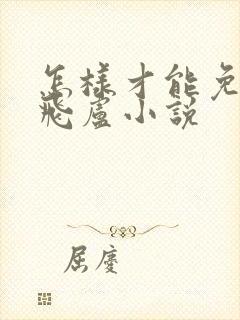 怎樣才能免
飛盧小說
屈慶